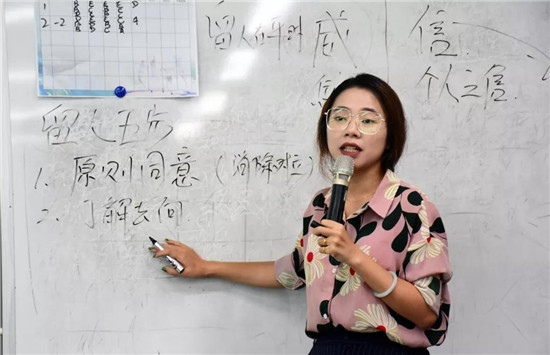 留人在平时 感 信
个人之信
留人五步
1. 原则同意 (消除对立)
2. 了解去向